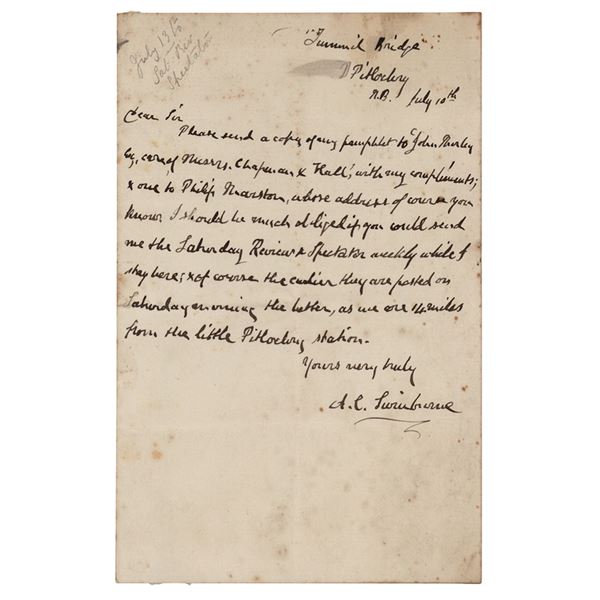 July 13, 15
Sat. Rev
Spectator
Tummel Bridge
Pitlochry
N.B. July 10th
Dear Sir
Please send a copy of my pamphlet to John Morley
Esq, care of Messrs. Chapman & Hall, with my compliments;
& one to Philip Marston, whose address of course you
know. I should be much obliged if you would send
me the Saturday Review & Spectator weekly while I
stay here; & of course the earlier they are posted on
Saturday morning the better, as we are 14 miles
from the little Pitlochry station.
Yours very truly
A. C. Swinburne